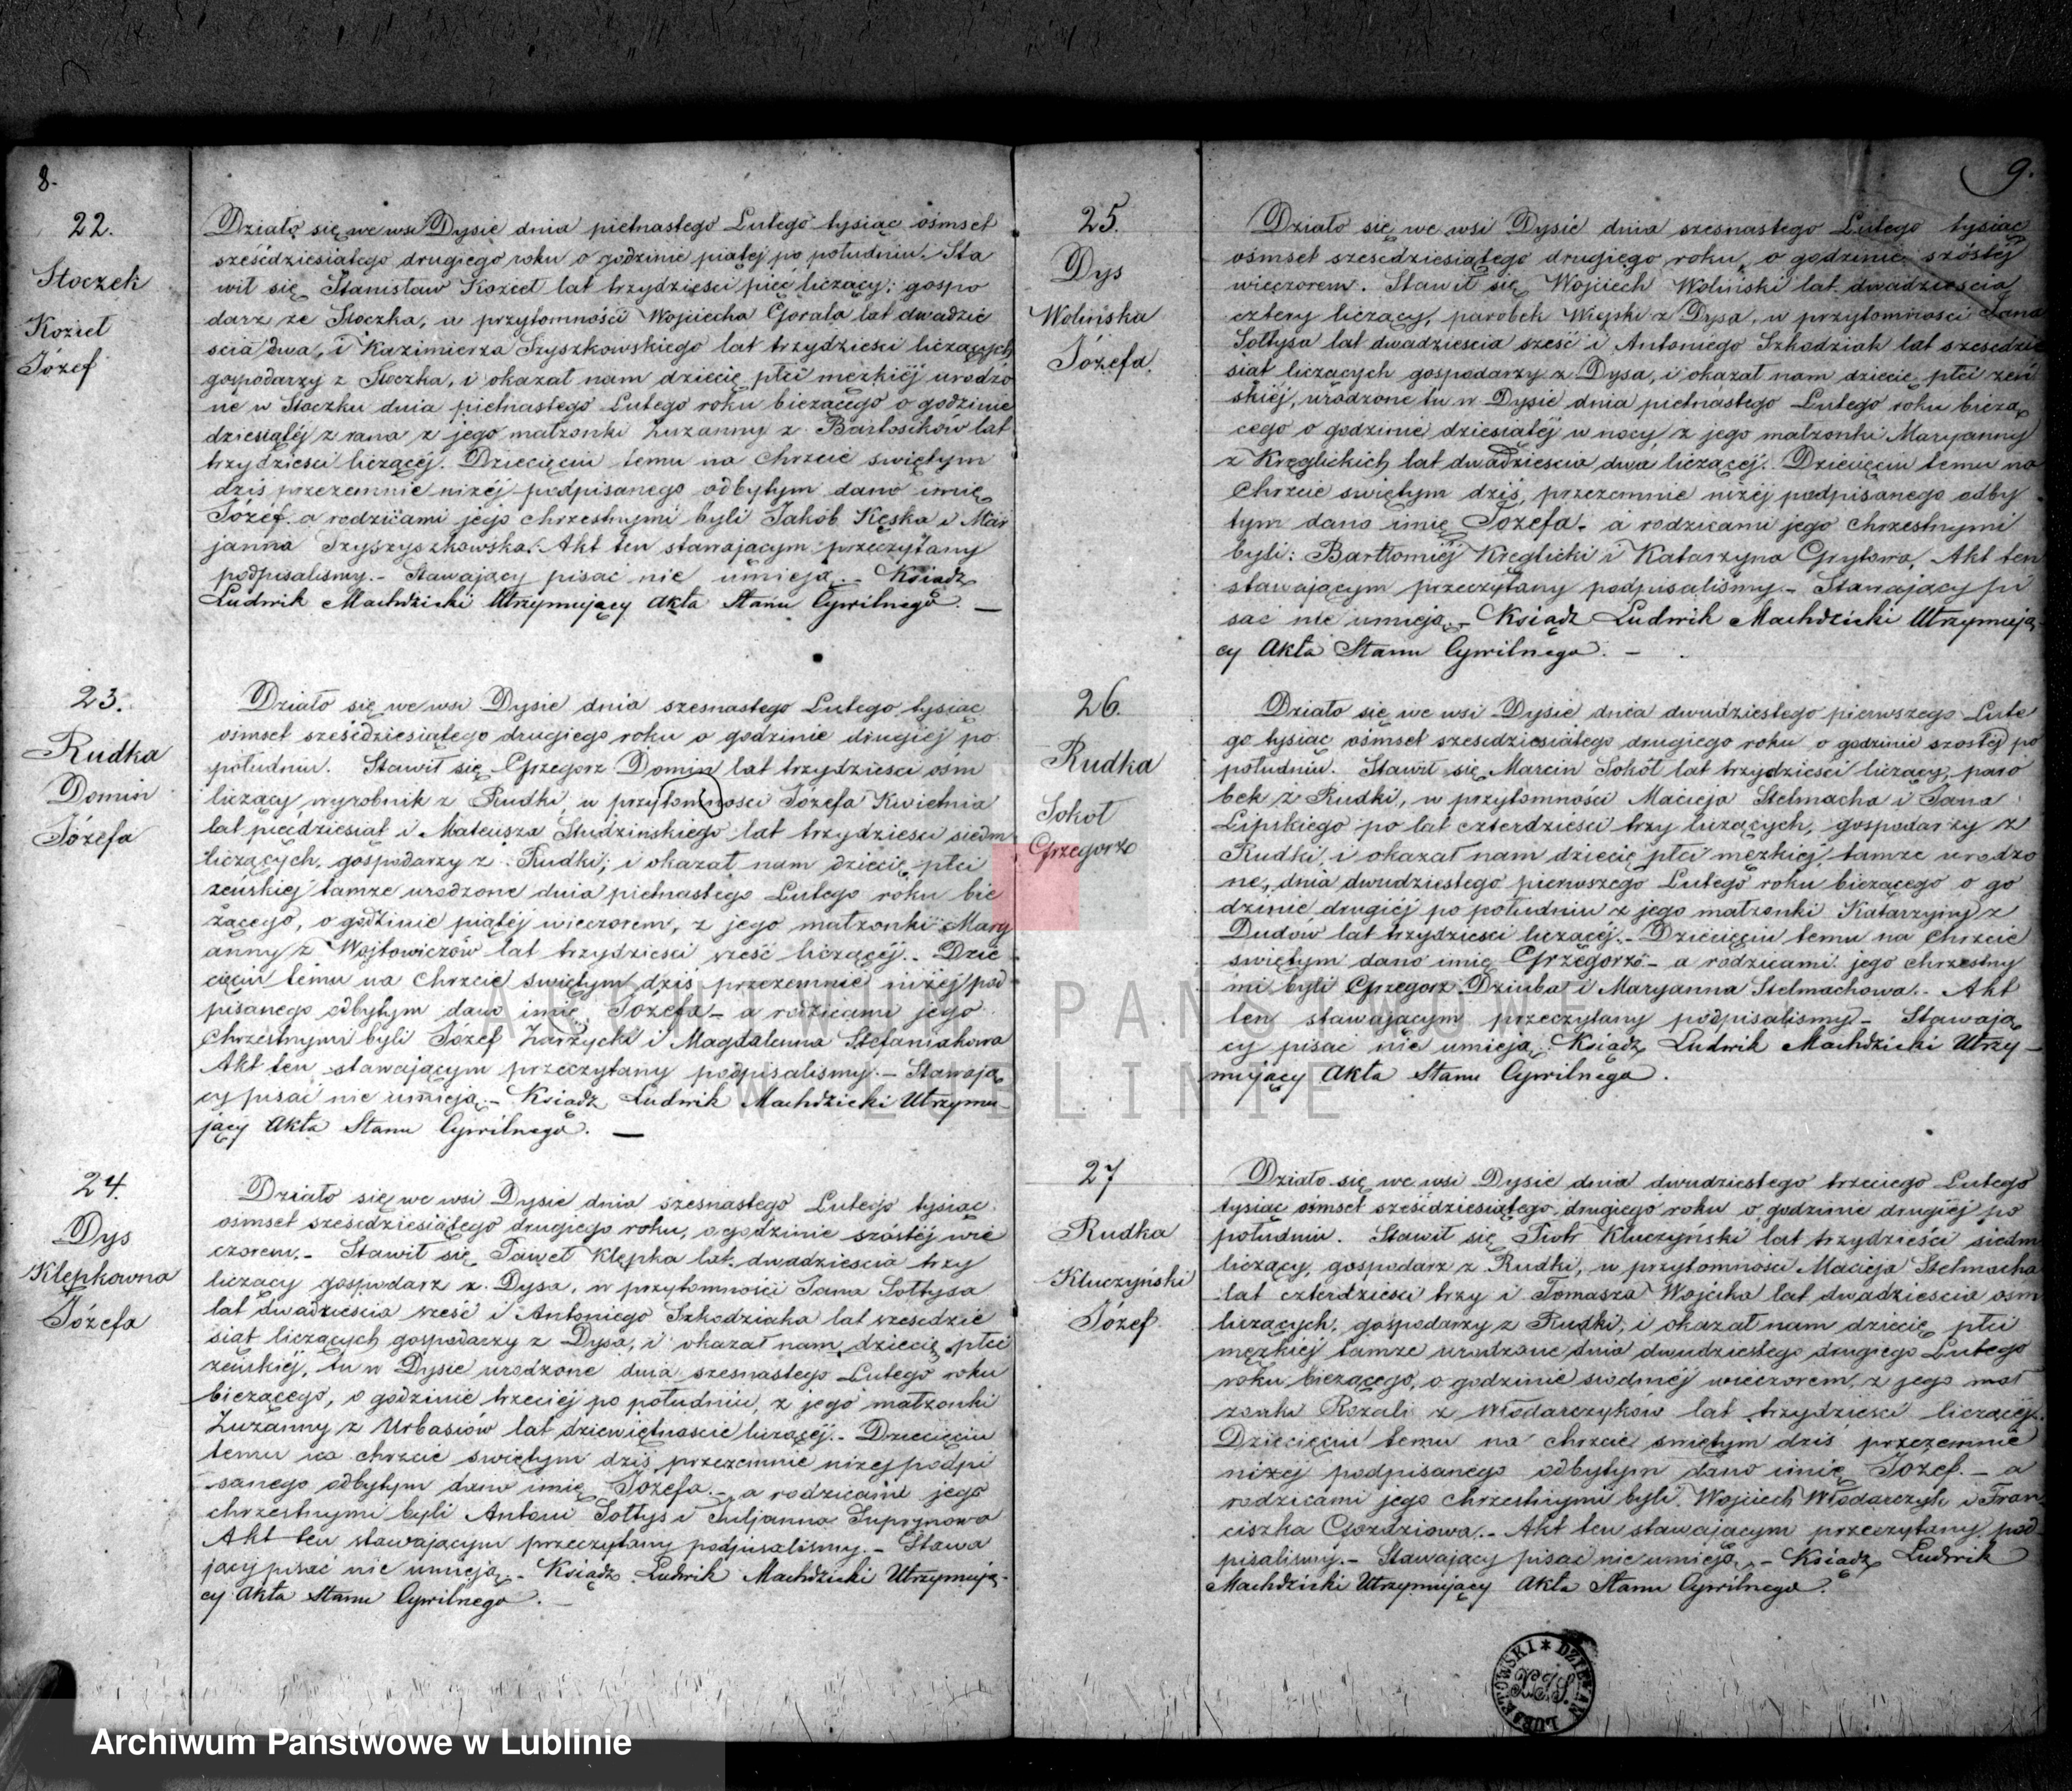 8.
22.
Stoczek
Kozieł
Józef
Działo się we wsi Dysie dnia pietnastego Lutego tysiąc ośmset
sześćdziesiatego drugiego roku o godzinie piątej po południu. Sta
wił się Stanisław Kozieł lat trzydzieści pięć liczący; gospo
darz ze Stoczka, w przytomności Wojciecha Gorala lat dwadzie
scia dwa, i Kazimierza Szyszkowskiego lat trzydzieści liczących
gospodarzy z Stoczka, i okazał nam dziecię płci męzkiéj urodzo
ne w Stoczku dnia pietnastego Lutego roku bieżącego o godzinie
dziesiątéj z rana z jego małżonki Zuzanny z Bartosików lat
trzydzieści liczącéj. Dziecięciu temu na chrzcie świętym
dziś przezemnie niżéj podpisanego odbytym dano imię
Józef. a rodzicami jego chrzestnymi byli Jakób Kęska i Mar
janna Szyszyszkowska. Akt ten stawającym przeczytany
podpisaliśmy.- Stawający pisać nie umieją.- Ksiądz
Ludwik Machdzicki Utrzymujący Akta Stanu Cywilnego. —
23.
Rudka
Domin
Józefa
Działo się we wsi Dysie dnia szesnastego Lutego tysiąc
ośmset sześćdziesiątego drugiego roku o godzinie drugiej po
południu. Stawił się Grzegorz Domin lat trzydzieści ośm
liczący wyrobnik z Rudki, w przytomności Józefa Kwietnia
lat piećdziesiat i Mateusza Studzińskiego lat trzydzieści siedm
liczących, gospodarzy z Rudki; i okazał nam dziecię płci
żeńskiej tamże urodzone dnia pietnastego Lutego roku bie
żącego, o godzinie piątéj wieczorem, z jego małżonki Mary
anny z Wojtowiczów lat trzydzieści sześć liczącéj.- Dzie
cięciu temu na chrzcie świętym dziś przezemnie niżéj pod
pisanego odbytym dano imię Józefa - a rodzicami jego
chrzestnymi byli Józef Zarzycki i Magdalenna Stefaniakowa
Akt ten stawającym przeczytany podpisaliśmy.- Stawają
cy pisać nie umieją.- Ksiądz Ludwik Machdzicki Utrzymu-
jący Akta Stanu Cywilnego. —
24.
Dys
Klępkowna
Józefa
Działo się we wsi Dysie dnia szesnastego Lutego tysiąc
ośmset sześćdziesiątego drugiego roku, o godzinie szóstéj wie
czorem.- Stawił się Paweł Klępka lat dwadzieścia trzy
liczący gospodarz z Dysa, w przytomności Jana Sołtysa
lat dwadzieścia sześć i Antoniego Szkodziaka lat szesćdzie
siąt liczących gospodarzy z Dysa, i okazał nam dziecię płci
żeńskiéj, tu w Dysie urodzone dnia szesnastego Lutego roku
bieżącego, o godzinie trzeciej po południu, z jego małżonki
Zuzanny z Urbasiów lat dziewiętnaście liczącéj.- Dziecięciu
temu na chrzcie świętym dziś przezemnie niżej podpi
sanego odbytym dano imię Józefa.- a rodzicami jego
chrzestnymi byli Antoni Sołtys i Juljanna Suprynowa
Akt ten stawającym przeczytany podpisaliśmy.- Stawa
jący pisać nie umieją.- Ksiądz Ludwik Machdzicki Utrzymują-
cy Akta Stanu Cywilnego. —
9.
25.
Dys
Wolińska
Józefa.
Działo się we wsi Dysie dnia szesnastego Lutego tysiąc
ośmset sześćdziesiątego drugiego roku, o godzinie szóstéj
wieczorem. Stawił się Wojciech Woliński lat dwadzieścia
cztery liczący, parobek Wiejski z Dysa, w przytomności Jana
Sołtysa lat dwadzieścia sześć i Antoniego Szkodziak lat sześćdzie
siąt liczących gospodarzy z Dysa, i okazał nam dziecię płci żeń
skiéj, urodzone tu w Dysie dnia pietnastego Lutego roku bieżą
cego o godzinie dziesiątéj w nocy z jego małżonki Maryanny
z Kręglickich lat dwadzieścia dwa liczącéj. Dziecięciu temu na
Chrzcie świętym dziś, przezemnie niżéj podpisanego odby
tym dano imię Józefa - a rodzicami jego chrzestnymi
byli: Bartłomiéj Kręglicki i Katarzyna Grytowa, Akt ten
stawającym przeczytany podpisaliśmy.- Stawający pi
sać nie umieją.- Ksiądz Ludwik Machdzicki Utrzymują-
cy Akta Stanu Cywilnego. —
26.
Rudka
Sokoł
Grzegorz
Działo się we wsi Dysie dnia dwudziestego pierwszego Lute
go tysiąc ośmset sześćdziesiątego drugiego roku o godzinie szóstéj po
południu. Stawił się Marcin Sokół lat trzydzieści liczący, paro
bek z Rudki, w przytomności Macieja Stelmacha i Jana
Lipskiego po lat czterdzieści trzy liczących, gospodarzy z
Rudki, i okazał nam dziecię płci męzkiéj, tamże urodzo
ne, dnia dwudziestego pierwszego Lutego roku bieżącego o go
dzinie drugiéj po południu z jego małżonki Katarzyny z
Dudów lat trzydzieści liczącéj.- Dziecięciu temu na chrzcie
świętym dano imię Grzegorz - a rodzicami jego chrzestny
mi byli Grzegorz Dziuba i Maryanna Stelmachowa.- Akt
ten stawającym przeczytany podpisaliśmy - Stawają
cy pisać nie umieją. Ksiądz Ludwik Machdzicki Utrzy-
mujący Akta Stanu Cywilnego.
27
Rudka
Kluczyński
Józef
Działo się we wsi Dysie dnia dwudziestego trzeciego Lutego
tysiąc ośmset sześćdziesiątego drugiego roku o godzinie drugiéj po
południu. Stawił się Piotr Kluczyński lat trzydzieści siedm
liczący, gospodarz z Rudki, w przytomności Macieja Stelmacha
lat czterdzieści trzy i Tomasza Wojcika lat dwadzieścia ośm
liczących, gospodarzy z Rudki, i okazał nam dziecię płci
męzkiéj tamże urodzone dnia dwudziestego drugiego Lutego
roku bieżącego, o godzinie siódméj wieczorem, z jego mał
żonki Rozali z Włodarczyków lat trzydzieści liczącéj.
Dziecięciu temu na chrzcie świętym dziś przezemnie
niżej podpisanego odbytym dano imię Józef.- a
rodzicami jego chrzestnymi byli Wojciech Włodarczyk i Fran
ciszka Gozdziowa.- Akt ten stawającym przeczytany pod-
pisaliśmy.- Stawający pisać nie umieją.- Ksiądz Ludwik
Machdzicki Utrzymujący Akta Stanu Cywilnego.
ARCHIWUM PAŃSTWOWE
W LUBLINIE
Archiwum Państwowe w Lublinie